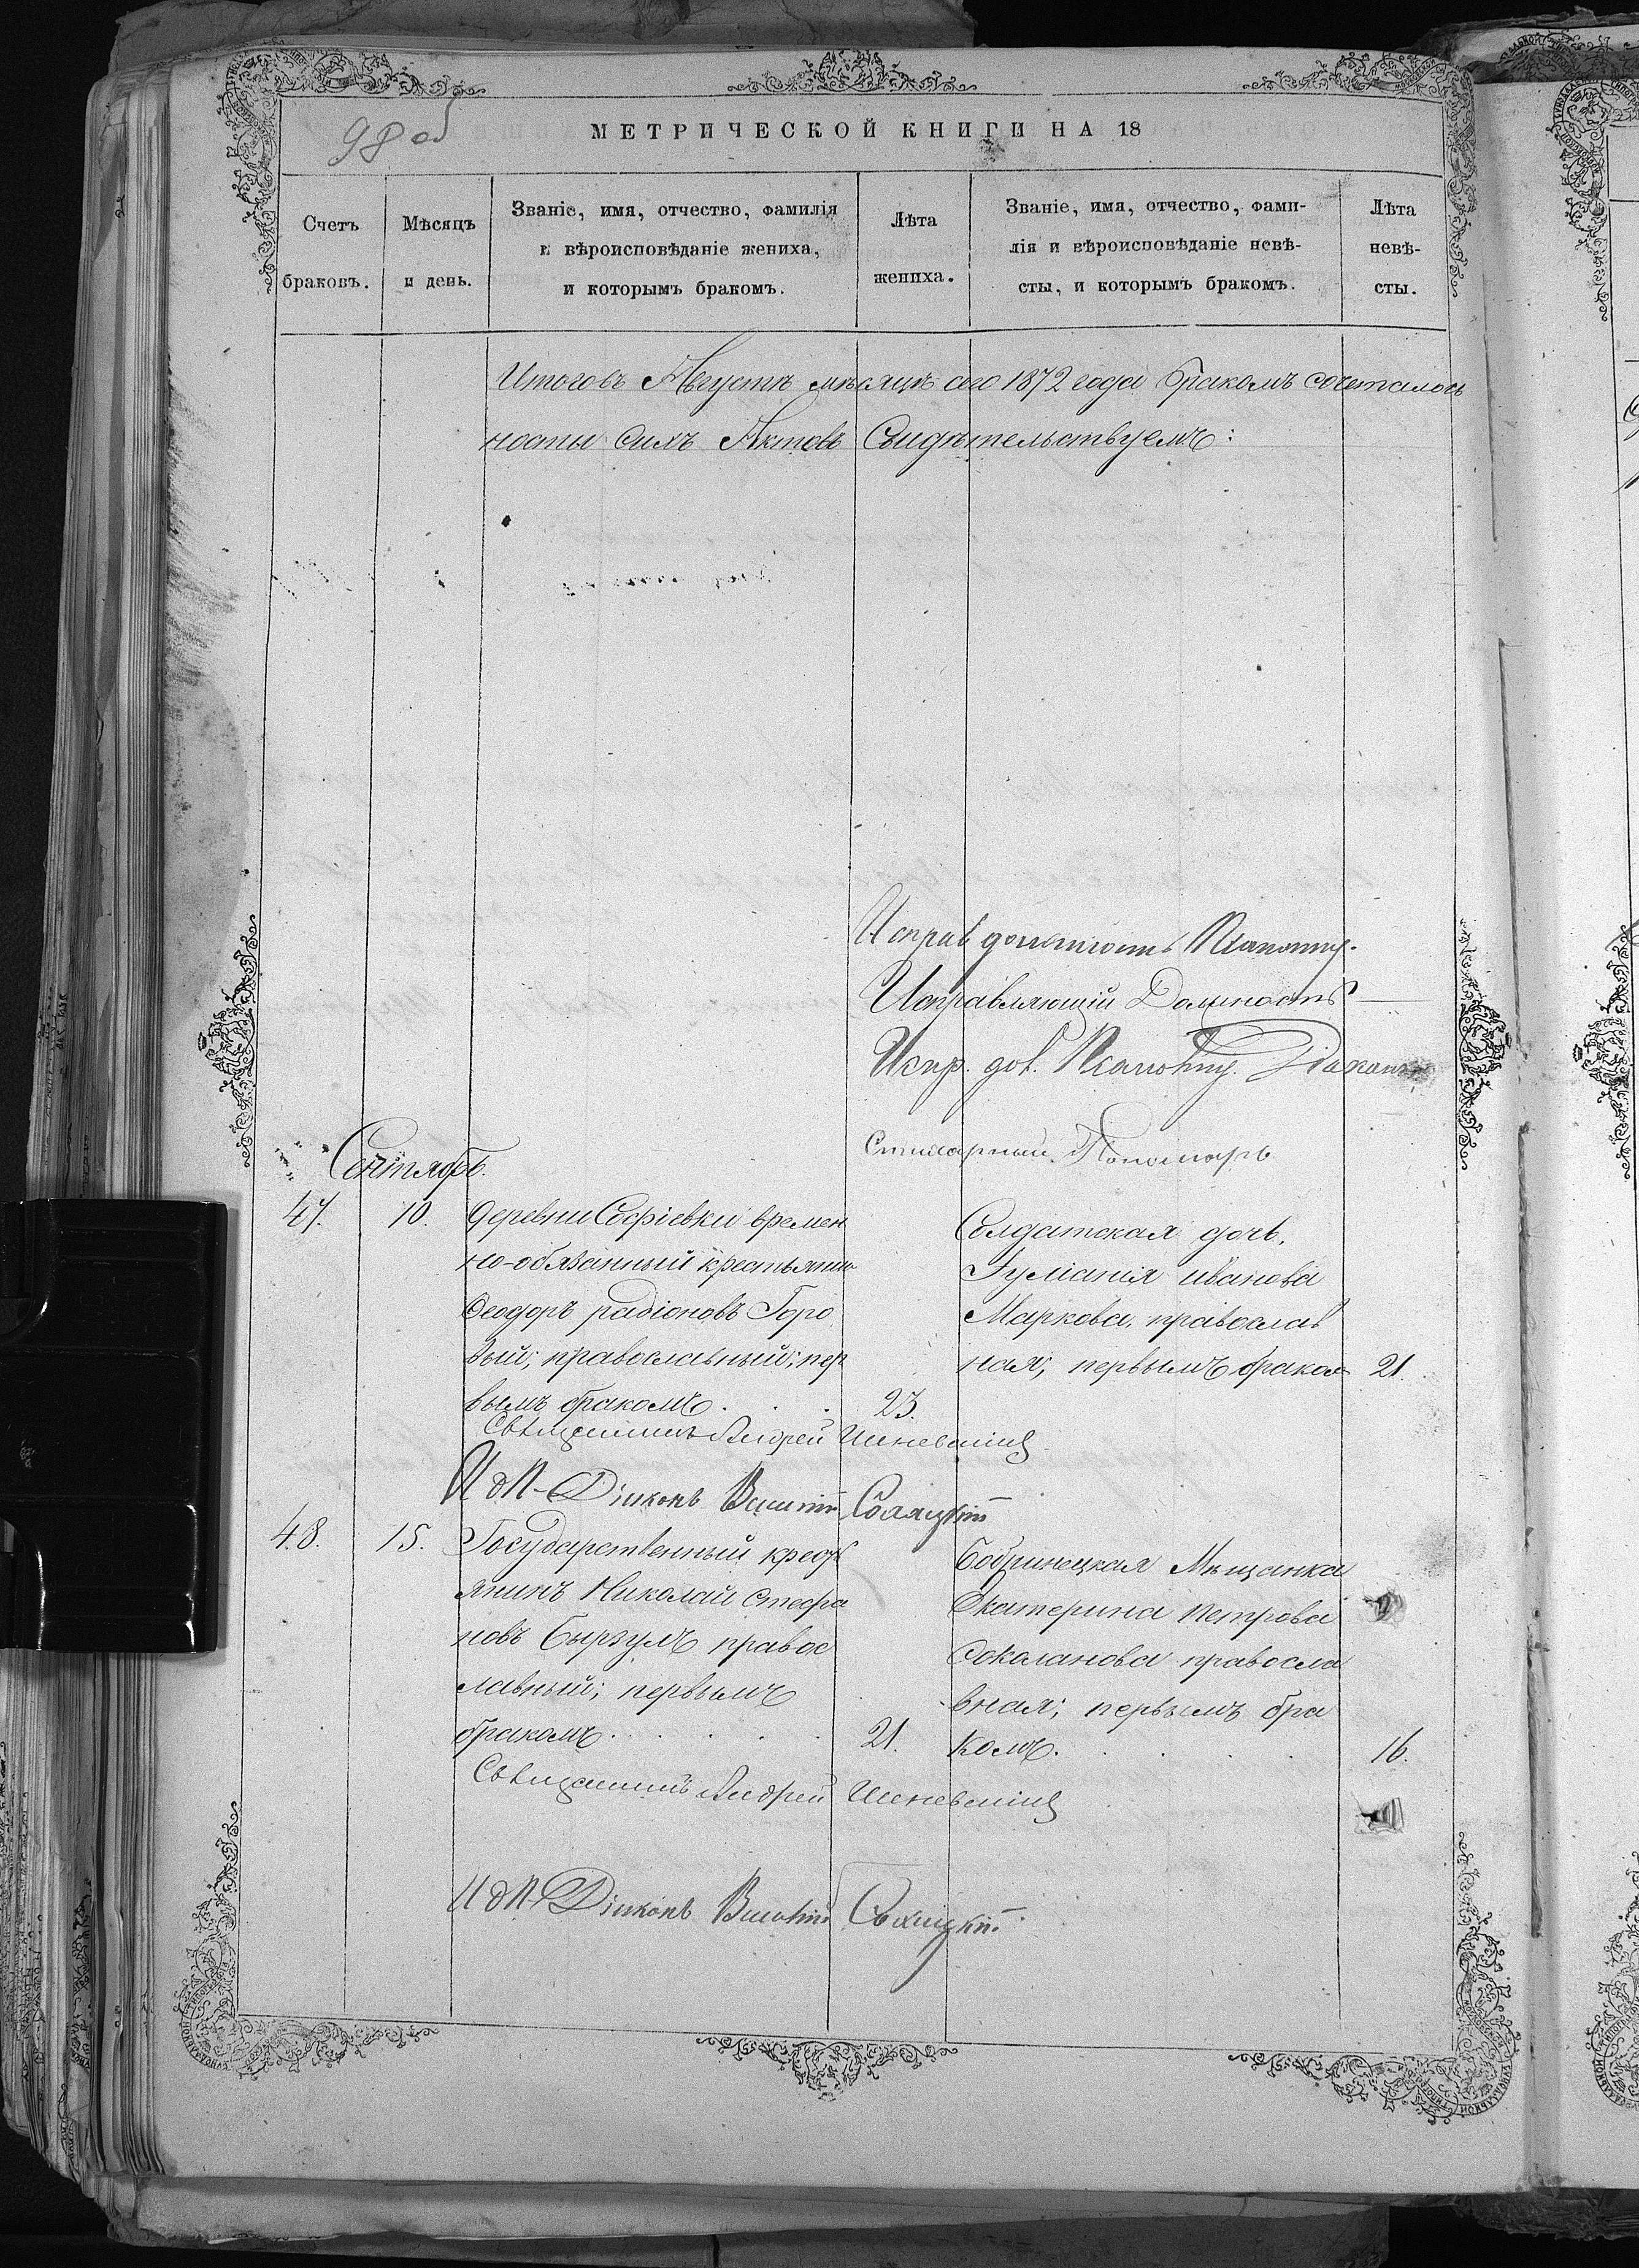 98 об
МЕТРИЧЕСКОЙ КНИГИ НА 18
Счетъ браковъ.
Мѣсяцъ и день.
Званіе, имя, отчество, фамилія
и вѣроисповѣданіе жениха,
и которымъ бракомъ.
Лѣта жениха.
Званіе, имя, отчество, фами-
лія и вѣроисповѣданіе невѣ-
сты, и которымъ бракомъ.
Лѣта невѣ-сты.
Итоговъ Августѣ мѣсяцѣ сего 1872 года бракомъ сочеталось
ности симъ Актовъ Свидѣтельствуемъ:
Исправ должность
Исправляющій Должность
Испр. дол. Діаконъ
Стихарный Пономарь
Сентябрь.
47. 10.
деревни Софіевки времен
но-обязанный крестьянинъ
Ѳеодоръ радіоновъ Горо
вый; православный; пер
вымъ бракомъ.
23.
Солдатская дочь,
Іуліанія иванова
Маркова, православ
ная; первымъ браком
21.
Священникъ Андрей
И д П Діаконъ
48. 15.
Государственный крест
янинъ Николай Стефа
новъ Бырзулъ правос
лавный; первымъ
бракомъ.
21.
Бобринецкая Мѣщанка
Екатерина петрова
Соколанова правосла
вная; первымъ бра
комъ.
16.
Священникъ Андрей
И д П Діаконъ